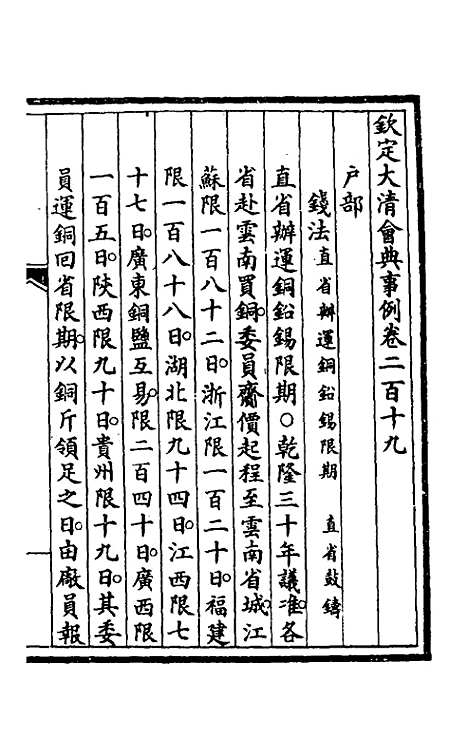 欽定大清會典事例卷二百十九
戶部
錢法直省辦運銅鉛錫限期 直省鼓鑄
直省辦運銅鉛錫限期○乾隆三十年議准。各
省赴雲南買銅。委員齎價起程至雲南省城。江
蘇限一百八十二日。浙江限一百二十日。福建
限一百八十八日。湖北限九十四日。江西限七
十七日。廣東銅鹽互易。限二百四十日。廣西限
一百五日。陝西限九十日。貴州限十九日。其委
員運銅回省限期。以銅斤領足之日。由廠員報